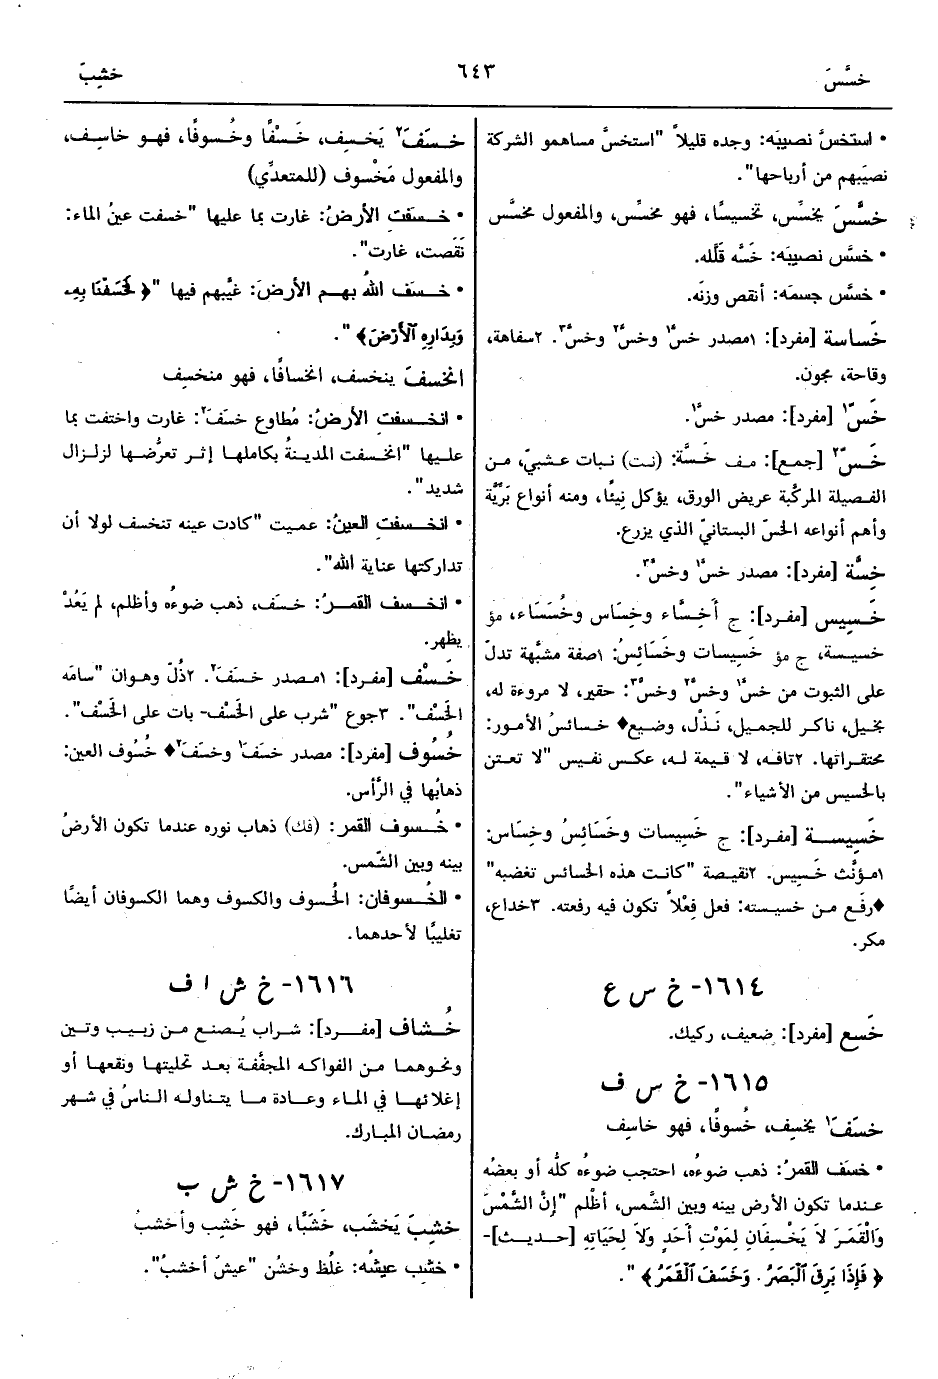 خسَّسَ
٦٤٣
خشِبَ
• استخسَّ نصيبَه: وجده قليلاً "استخسَّ مساهمو الشركة
نصيبَهم من أرباحها".
خسَّسَ يخسِّس، تخسيسًا، فهو مخسِّس، والمفعول مخسَّس
• خسَّس نصيبَه: خَسَّه قلَّله.
• خسَّس جسمَه: أنقص وزنَه.
خَساسة [مفرد]: ١مصدر خسَّ١ وخسَّ٢ وخسَّ٣. ٢سفاهة،
وقاحة، مجون.
خَسّ١ [مفرد]: مصدر خسَّ١.
خَسّ٢ [جمع]: مف خَسَّة: (نت) نبات عشبيّ، من
الفصيلة المركّبة عريض الورق، يؤكل نِيئًا، ومنه أنواع بَرِّيَّة
وأهم أنواعه الخسّ البستانيّ الذي يزرع.
خسَّة [مفرد]: مصدر خسَّ١ وخسَّ٣.
خَسِيس [مفرد]: ج أَخِسَّاء وخِسَاس وخُسَسَاء، مؤ
خسيسة، ج مؤ خَسِيسات وخَسائِسُ: ١صفة مشبَّهة تدلّ
على الثبوت من خسَّ١ وخسَّ٢ وخسَّ٣: حقير، لا مروءة له،
بخيل، ناكر للجميل، نَذْل، وضيع♦ خسائسُ الأمور:
محتقراتها. ٢تافه، لا قيمة له، عكس نفيس "لا تعتن
بالخسيس من الأشياء".
خَسِيسة [مفرد]: ج خَسِيسات وخَسَائِسُ وخِسَاس:
١مؤنَّث خَسِيس. ٢نقيصة "كانت هذه الخسائس تغضبه"
♦رفَع من خسيسته: فعل فِعْلاً تكون فيه رفعته. ٣خداع،
مكر.
١٦١٤- خ س ع
خَسِع [مفرد]: ضعيف، ركيك.
١٦١٥- خ س ف
خسَفَ١ يخسِف، خُسوفًا، فهو خاسِف
• خسَف القمرُ: ذهب ضوءُه، احتجب ضوءُه كلُّه أو بعضُه
عندما تكون الأرض بينه وبين الشَّمس، أظْلم "إِنَّ الشَّمْسَ
وَالْقَمَرَ لاَ يَخْسِفَانِ لِمَوْتِ أَحَدٍ وَلاَ لِحَيَاتِهِ [حديث]-
﴿ فَإِذَا بَرِقَ ٱلْبَصَرُ. وَخَسَفَ ٱلْقَمَرُ ﴾ ".
خسَفَ٢ يَخسِف، خَسْفًا وخُسوفًا، فهو خاسِف،
والمفعول مَخْسوف (للمتعدِّي)
• خسفَتِ الأرضُ: غارت بما عليها "خسفت عينُ الماء:
نَقَصت، غارت".
• خسَف اللهُ بهم الأرضَ: غيَّبهم فيها "﴿ فَخَسَفْنَا بِهِۦ
وَبِدَارِهِ ٱلْأَرْضَ ﴾ ".
انخسفَ ينخسف، انخسافًا، فهو منخسِف
• انخسفتِ الأرضُ: مُطاوع خسَفَ٢: غارت واختفت بما
عليها "انخسفت المدينةُ بكاملها إثر تعرُّضها لزلزال
شديد".
• انخسفتِ العينُ: عميت "كادت عينه تنخسف لولا أن
تداركتها عناية الله".
• انخسف القمرُ: خسَف، ذهب ضوءُه وأظلم، لم يَعُدْ
يظهر.
خَسْف [مفرد]: ١مصدر خسَفَ٢. ٢ذُلّ وهوان "سامَه
الخَسْف". ٣جوع "شرب على الخَسْف- بات على الخَسْف".
خُسُوف [مفرد]: مصدر خسَفَ١ وخسَفَ٢♦ خُسُوف العين:
ذهابُها في الرَّأس.
• خُسوف القمر: (فك) ذهاب نوره عندما تكون الأرضُ
بينه وبين الشَّمس.
• الخُسوفان: الخُسوف والكسوف وهما الكسوفان أيضًا
تغليبًا لأحدهما.
١٦١٦- خ ش ا ف
خُشاف [مفرد]: شراب يُصنع من زبيب وتين
ونحوهما من الفواكه المجفَّفة بعد تحليتها ونقعها أو
إغلائها في الماء وعادة ما يتناوله الناسُ في شهر
رمضان المبارك.
١٦١٧- خ ش ب
خشِبَ يَخشَب، خَشَبًا، فهو خَشِب وأخشبُ
• خشِب عيشُه: غلُظ وخشُن "عيشٌ أخشبُ".